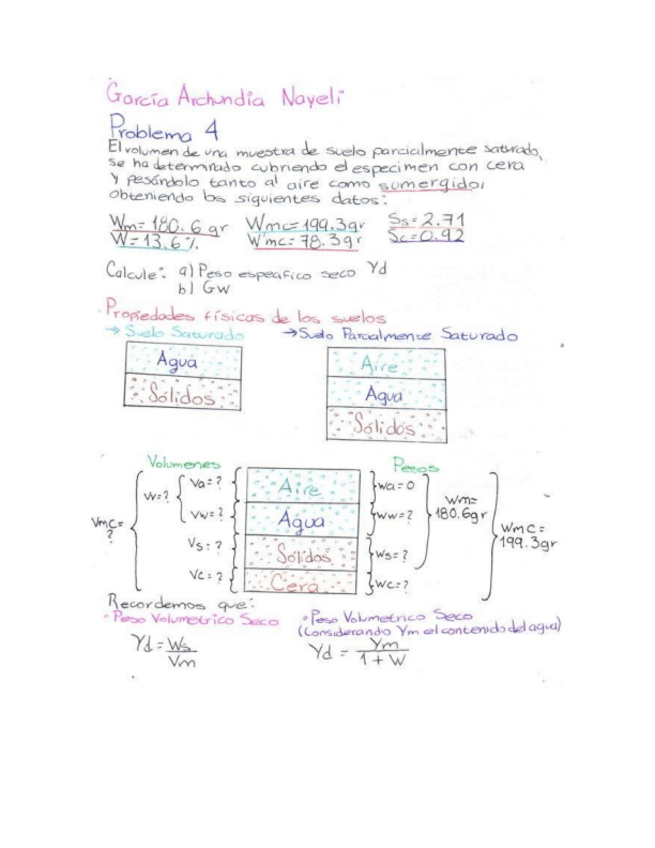 García Archundia Nayeli
Problema 4
El volumen de una muestra de suelo parcialmente saturado,
se ha determinado cubriendo el especimen con cera
y pesándolo tanto al aire como sumergido,
obteniendo los siguientes datos:
Wm = 180.6 gr Wmc = 199.3gr Ss = 2.71
W = 13.6% W'mc = 78.3gr Sc = 0.92
Calcule: a) Peso especifico seco Yd
b) Gw
Propiedades físicas de los suelos
→ Suelo Saturado → Suelo Parcialmente Saturado
Agua
Sólidos
Aire
Agua
Sólidos
Volumenes Pesos
Vmc = ?
VV = ?
Va = ?
Vw = ?
Vs = ?
Vc = ?
Aire
Agua
Sólidos
Cera
Wa = 0
Ww = ?
Ws = ?
Wc = ?
Wm = 180.6gr
Wmc = 199.3gr
Recordemos que:
• Peso Volumetrico Seco
Yd = Ws / Vm
• Peso Volumetrico Seco
(Considerando Ym el contenido del agua)
Yd = Ym / 1 + W